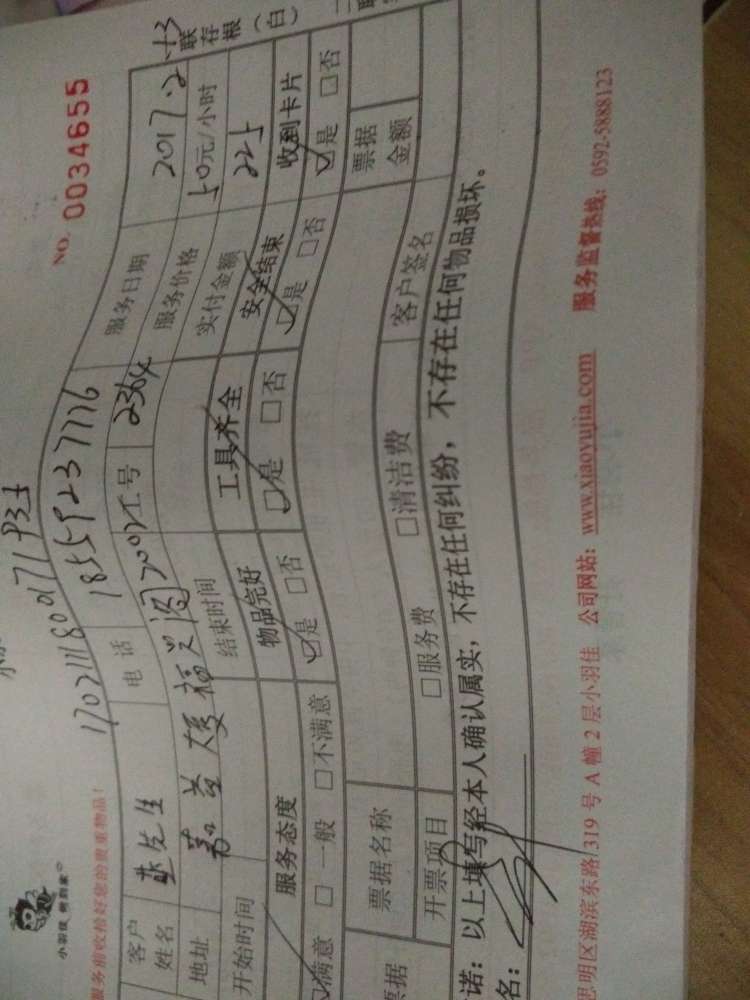 小羽佳 做到家
NO. 0034655
服务前收拾好您的贵重物品！
客户姓名 电话 18559237776 服务日期 2017.2
地址 嘉益大厦福兴阁7007 工号 2364 服务价格 50元/小时
开始时间 结束时间 实付金额 225
服务态度 物品完好 工具齐全 安全结束 收到卡片
☑满意 □一般 □不满意 ☑是 □否 ☑是 □否 ☑是 □否 ☑是 □否
票据 票据名称 票据金额
开票项目 □服务费 □清洁费 客户签名
诺：以上填写经本人确认属实，不存在任何纠纷，不存在任何物品损坏。
名：
思明区湖滨东路319号A幢2层小羽佳 公司网站：www.xiaoyujia.com 服务监督热线：0592-5888123
联存根（白）